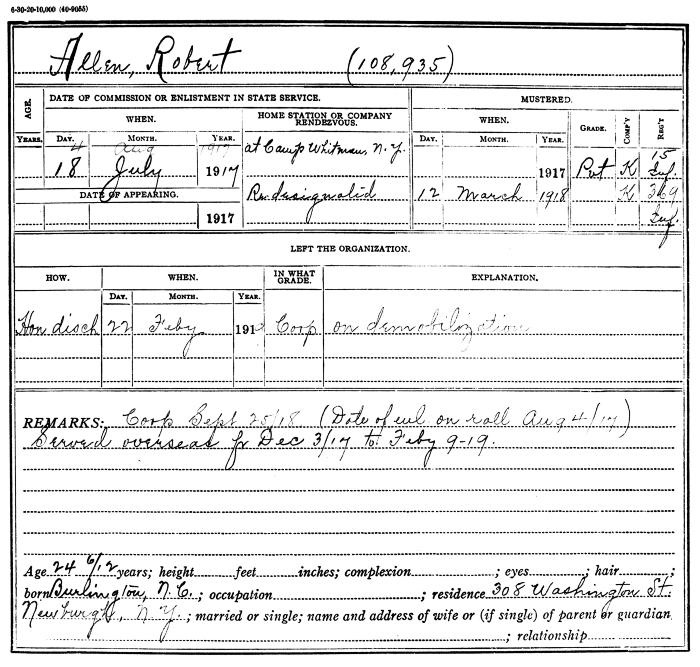 6-30-20-10,000 (40-9055)
Allen, Robert (108,935)
AGE. DATE OF COMMISSION OR ENLISTMENT IN STATE SERVICE. MUSTERED.
WHEN. HOME STATION OR COMPANY RENDEZVOUS. WHEN. GRADE. COMP'Y REG'T
YEARS. DAY. MONTH. YEAR. DAY. MONTH. YEAR.
4 Aug 1917 at Camp Whitman, N.Y. 15
18 July 1917 1917 Pvt K Inf.
DATE OF APPEARING. Redesignated 12 March 1918 K 369
1917 Inf
LEFT THE ORGANIZATION.
HOW. WHEN. IN WHAT GRADE. EXPLANATION.
DAY. MONTH. YEAR.
Hon disch 22 Feby 191 Corp on demobilization
REMARKS: Corp Sept 25/18 (Date of enl on roll Aug 4/17)
Served overseas fr Dec 3/17 to Feby 9-19.
Age 24 6/12 years; height feet inches; complexion ; eyes ; hair ;
born Burlington, N.C. ; occupation ; residence 308 Washington St.
Newburgh, N.Y. ; married or single; name and address of wife or (if single) of parent or guardian
; relationship